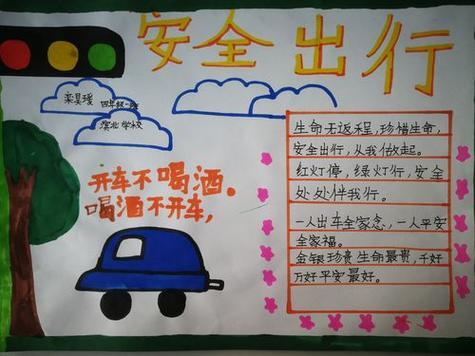 安全出行
栾昊瑶 四年级一班
滨北学校
开车不喝酒。
喝酒不开车,
生命无返程,珍惜生命,
安全出行,从我做起。
红灯停,绿灯行,安全
处处伴我行。
一人出车全家念,一人平安
全家福。
金银珍贵生命最贵,千好
万好平安最好。